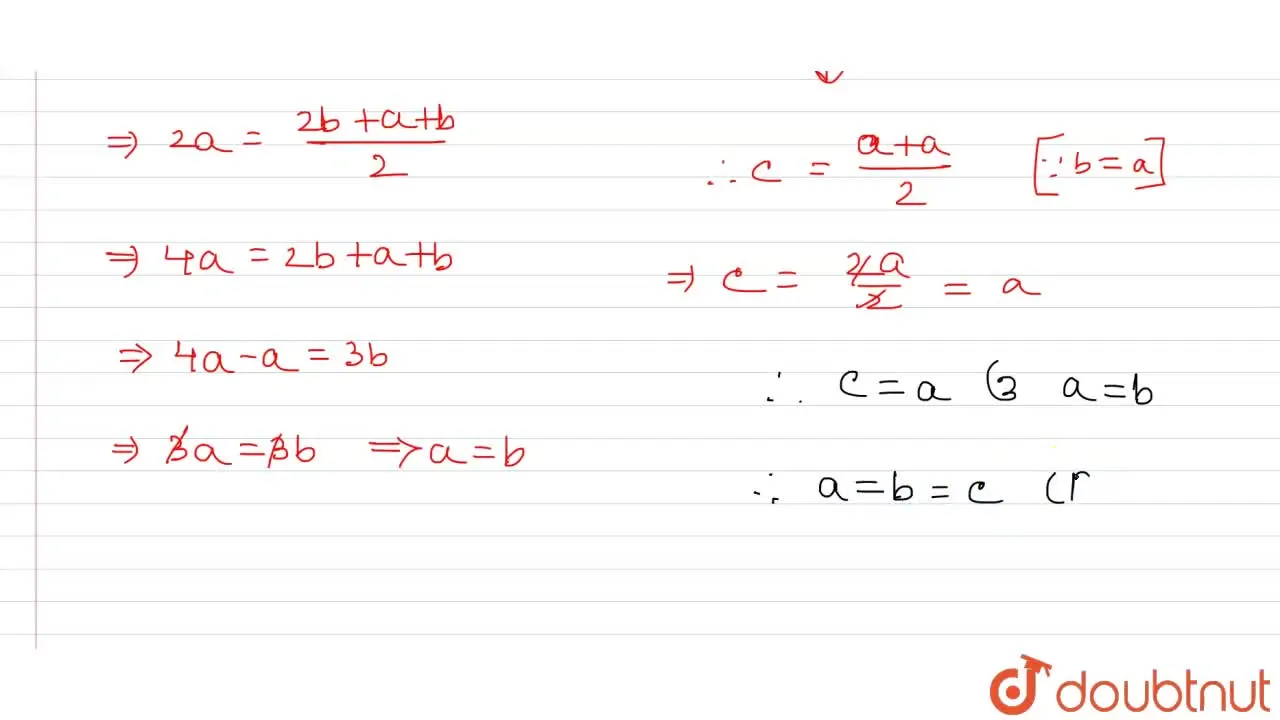 ⇒ 2a = (2b+a+b)/2
⇒ 4a = 2b+a+b
⇒ 4a-a = 3b
⇒ 3a = 3b ⇒ a = b
∴ c = (a+a)/2 [∵ b = a]
⇒ c = 2a/2 = a
∴ c = a a = b
∴ a = b = c (
doubtnut